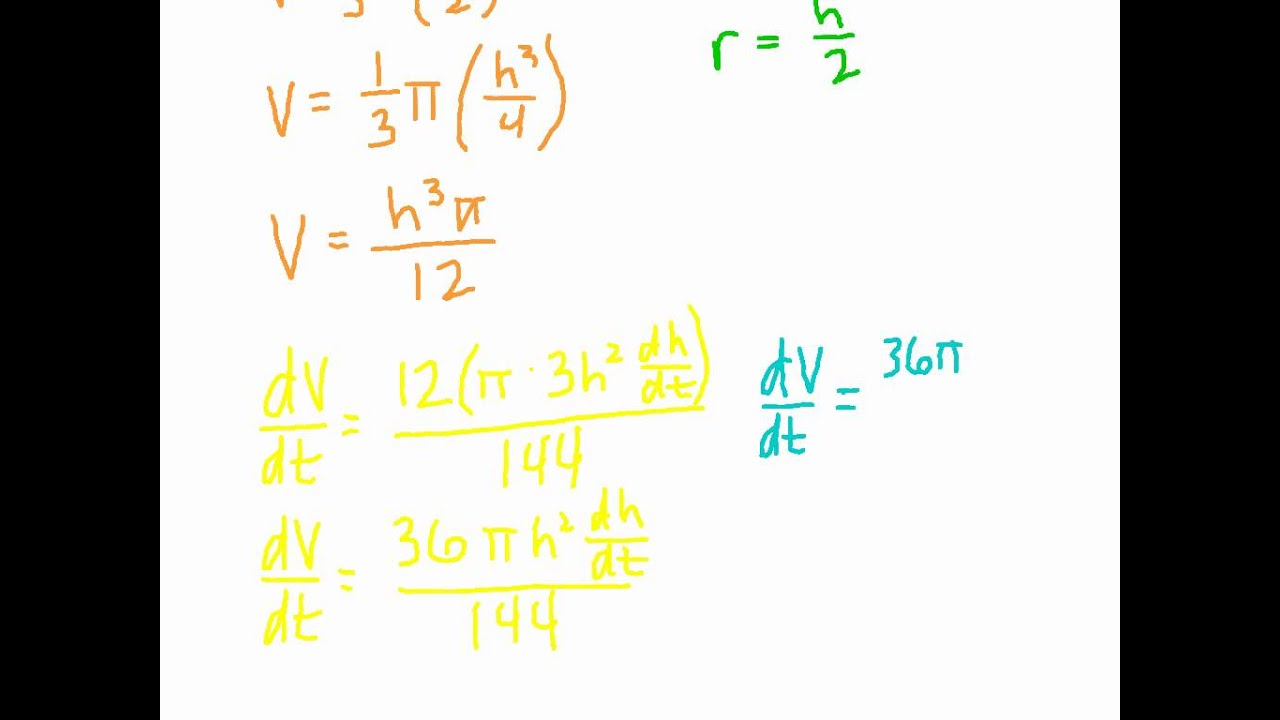 r = h/2
V = 1/3 π (h³/4)
V = h³π/12
dV/dt = 12(π · 3h² dh/dt)/144
dV/dt = 36π
dV/dt = 36πh² dh/dt/144